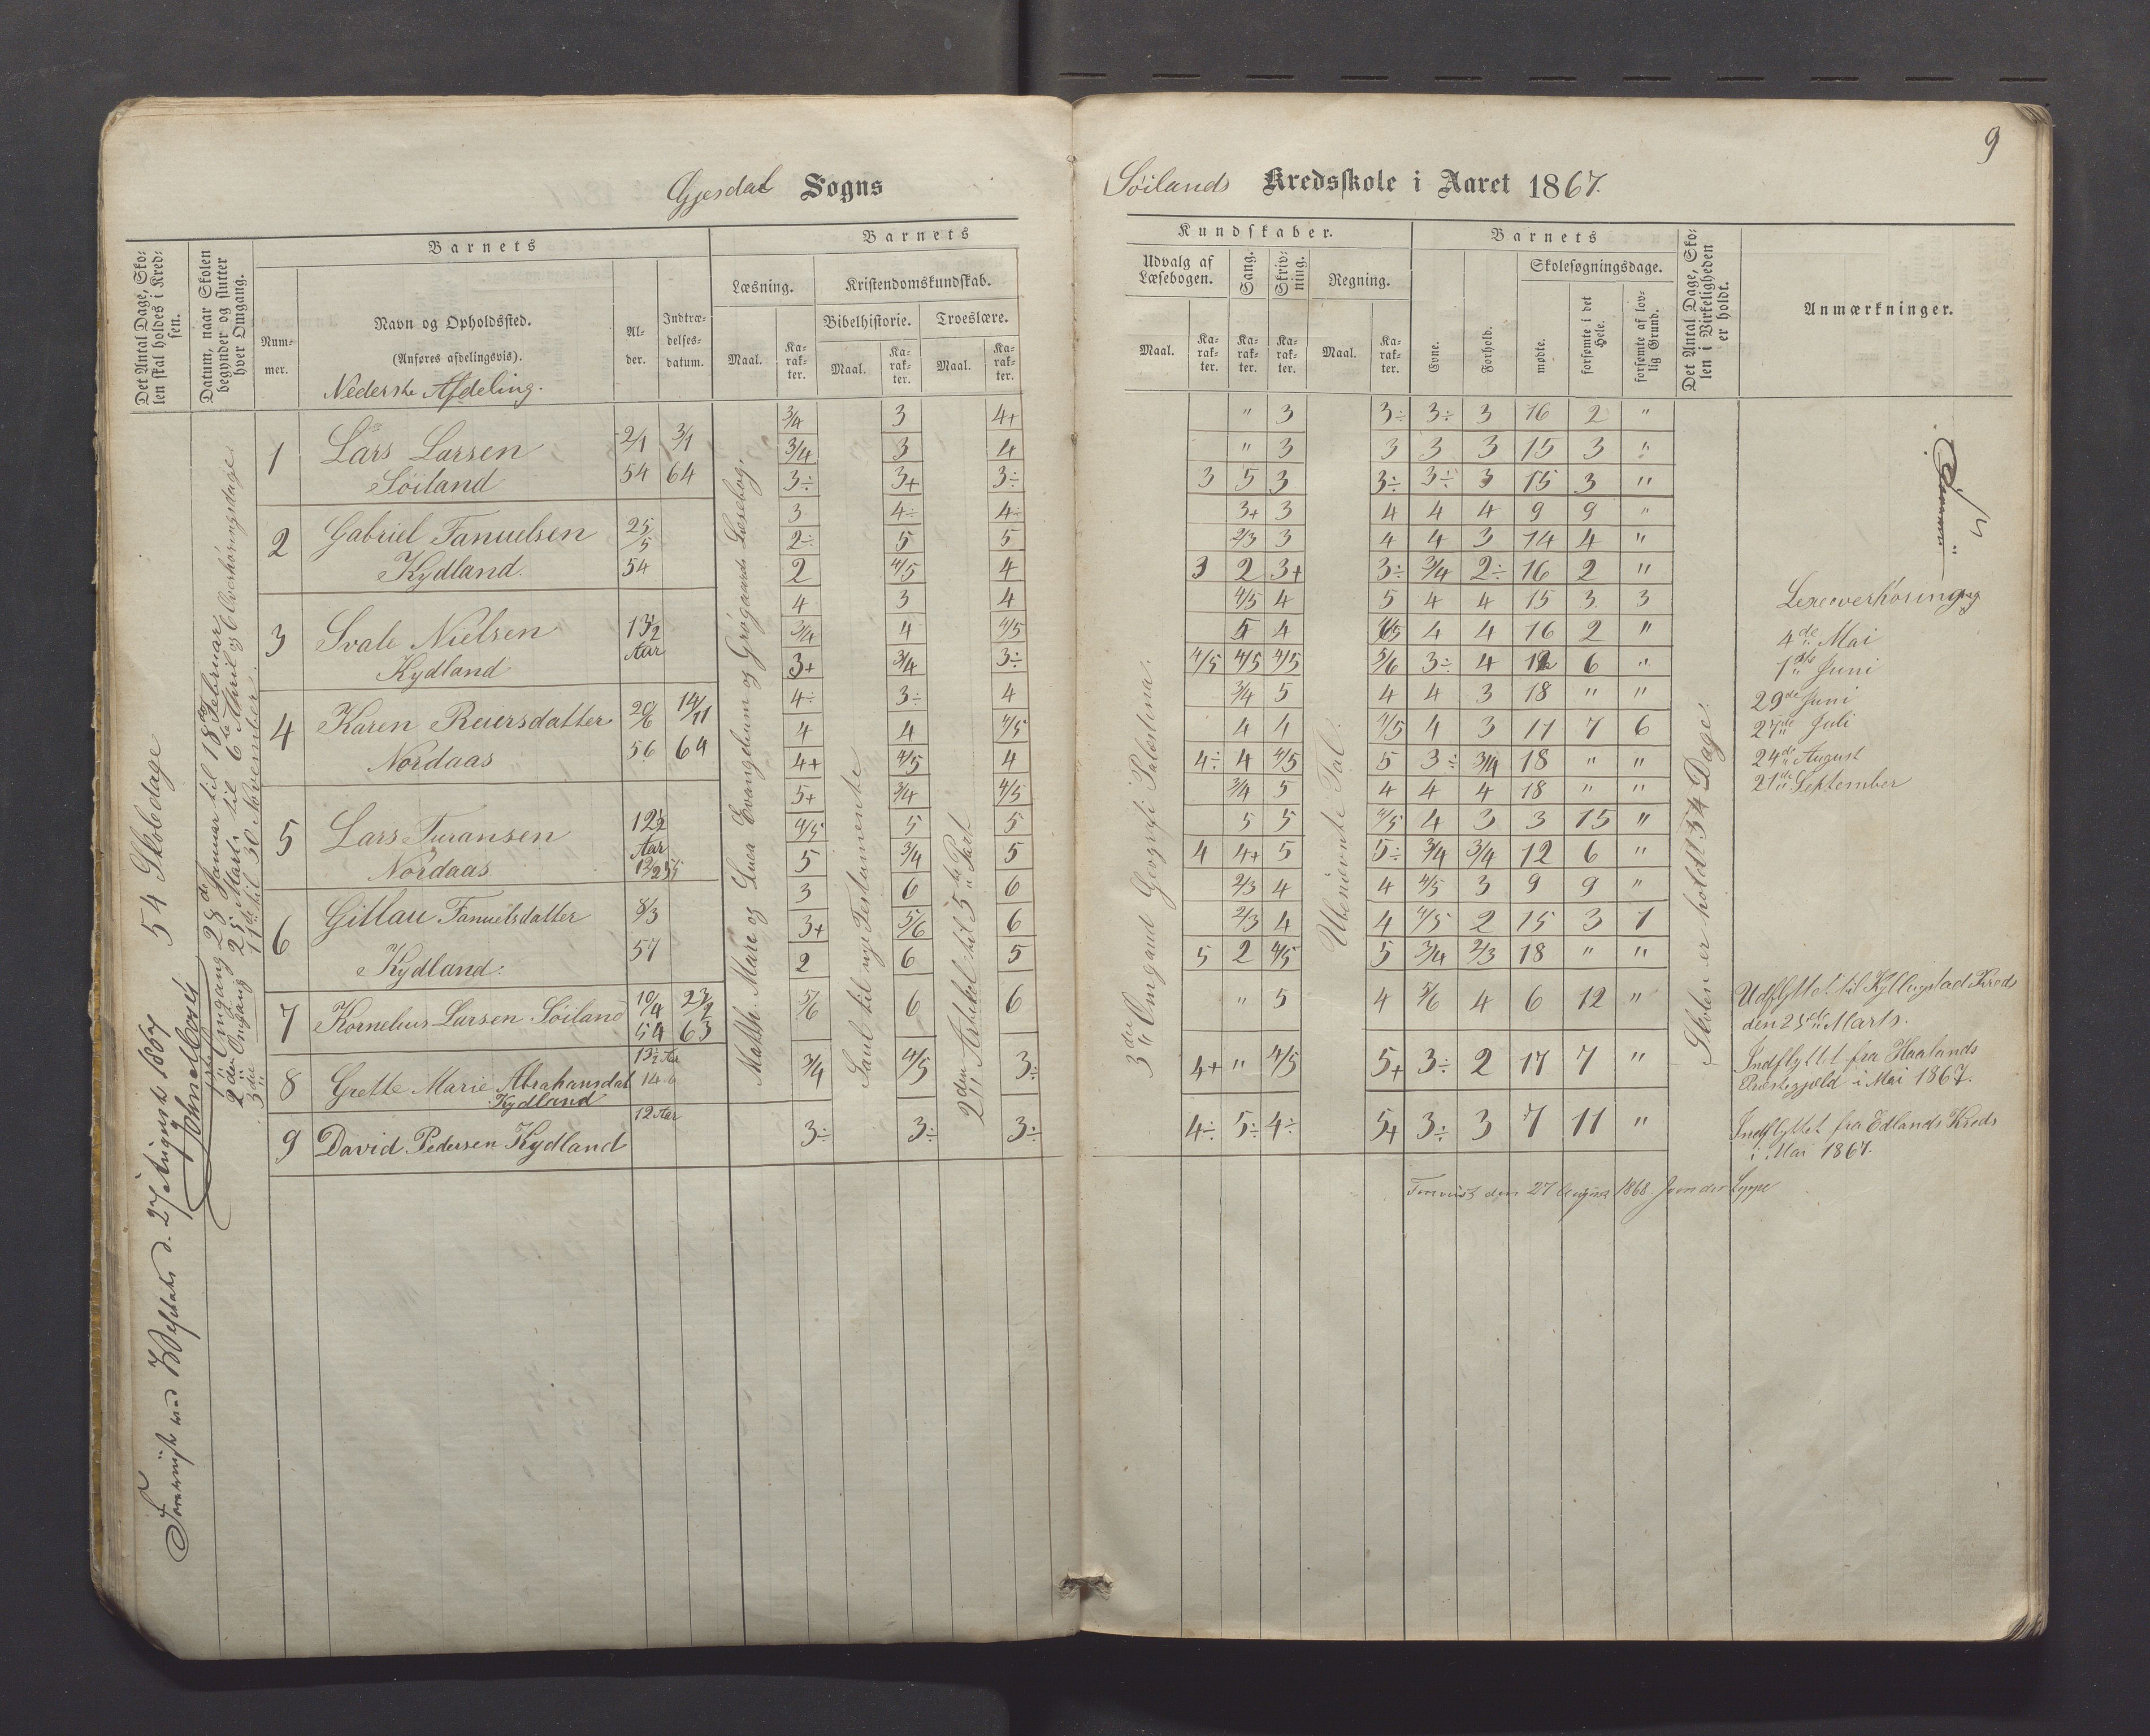 9
Gjesdal Sogns
Söilands Kredsskole i Aaret 1867.
Det Antal Dage, Sko-
len skal holdes i Kred-
sen.
Datum, naar Skolen
begynder og slutter
hver Omgang.
Barnets
Num-
mer.
Navn og Opholdssted.
(Anføres afdelingsvis).
Nederste Afdeling.
Al-
der.
Indtræ-
delses-
datum.
Barnets
Læsning.
Kristendomskundskab.
Bibelhistorie.
Troeslære.
Maal.
Ka-
rak-
ter.
Maal.
Ka-
rak-
ter.
Maal.
Ka-
rak-
ter.
Kundskaber.
Udvalg af
Læsebogen.
Sang.
Skriv-
ning.
Regning.
Maal.
Ka-
rak-
ter.
Ka-
rak-
ter.
Ka-
rak-
ter.
Maal.
Ka-
rak-
ter.
Barnets
Evne.
Forhold.
Skolesøgningsdage.
mødte.
forsømte i det
Hele.
forsømte af lov-
lig Grund.
Det Antal Dage, Sko-
len i Virkeligheden
er holdt.
Anmærkninger.
54 Skoledage
1 Lars Larsen 2/1 3/1
Söiland 54 64
2 Gabriel Fanuelsen 25/5
Kydland. 54
3 Svale Nielsen 13½
Kydland Aar
4 Karen Reiersdatter 20/6 14/11
Nordaas 56 64
5 Lars Turansen 12½
Nordaas Aar
6 Gitlau Fanuelsdatter 8/3
Kydland. 57
7 Kornelius Larsen Söiland 10/4 23/2
54 63
8 Grette Marie Abrahamsdat 13½ Aar
Kydland
9 David Pedersen Kydland 12 Aar
Matth. Marc og Luca Evangelium og Grögaards Læsebog.
Saul til nye Testamente
2den Artikel til 5te Part
3die Omgand Geografi Palæstina.
Ubenævnte Tal.
Skolen er holdt 54 Dage.
3/4 3 4+ " 3 3÷ 3÷ 3 16 2 "
3/4 3 4 " 3 3 3 3 15 3 "
3÷ 3+ 3÷ 3 5 3 3÷ 3÷ 3 15 3 "
3 4÷ 4÷ 3+ 3 4 4 4 9 9 "
2÷ 5 5 2/3 3 4 4 3 14 4 "
2 4/5 4 3 2 3+ 3÷ 3/4 2÷ 16 2 "
4 3 4 4/5 4 5 4 4 15 3 3
3/4 4 4/5 5 4 4 4 16 2 "
3+ 3/4 3÷ 4/5 4/5 4/5 5/6 3÷ 4 12 6 "
4÷ 3÷ 4 3/4 5 4 4 3 18 " "
4 4 4/5 4 4 4/5 4 3 11 7 6
4+ 4/5 4 4÷ 4 4/5 5 3÷ 3/4 18 " "
5+ 3/4 4/5 3/4 5 4 4 4 18 " "
4/5 5 5 5 5 4/5 4 3 3 15 "
5 3/4 5 4 4+ 5 5÷ 3/4 3/4 12 6 "
3 6 6 2/3 4 4 4/5 3 9 9 "
3+ 5/6 6 2/3 4 4 4/5 2 15 3 1
2 6 5 5 2 4/5 5 3/4 2/3 18 " "
5/6 6 6 " 5 4 5/6 4 6 12 "
3/4 4/5 3÷ 4+ " 4/5 5+ 3÷ 2 11 7 "
3÷ 3÷ 3÷ 4÷ 5÷ 4÷ 5+ 3÷ 3 7 11 "
4de Mai
1ste Juni
29de Juni
27de Juli
24de August
21de September
Udflyttet til Kyllingstad Kreds
den 25de Marts.
Indflyttet fra Haalands
Præstegjeld i Mai 1867.
Indflyttet fra Edlands Kreds
i Mai 1867.